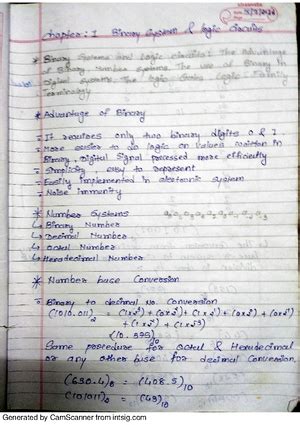 Chapter: 1 Binary System & logic circuits
* Binary Systems and Logic circuits: The Advantage
of Binary Number Systems. The use of Binary in
Digital systems. The Logic Gates Logic Family
Terminology
* Advantage of Binary
- It requires only two binary digits 0 & 1.
- More easier to do logic on values written in
Binary, Digital Signal processed more efficiently
- Simplicity, easy to represent
- Easily implemented in electronic system
- Noise immunity
* Number Systems
↳ Binary Number
↳ Decimal Number
↳ Octal Number
↳ Hexadecimal Number
* Number base Conversion
- Binary to decimal No. Conversion
(1010.011)₂ = (1×2³) + (0×2²) + (1×2¹) + (0×2⁰) + (0×2⁻¹)
+ (1×2⁻²) + (1×2⁻³)
(10.375)₁₀
Same procedure for octal & Hexadecimal
or any other base for decimal Conversion.
(630.4)₈ = (408.5)₁₀
Generated by CamScanner from intsig.com